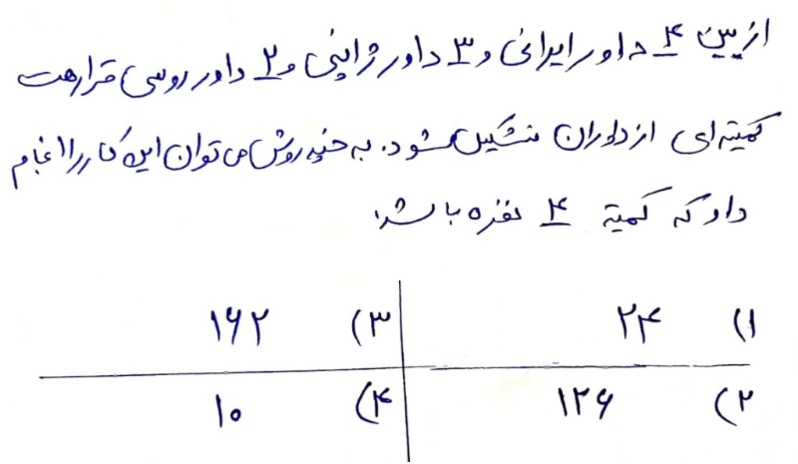 از بین ۴ داور ایرانی و ۳ داور ژاپنی و ۲ داور روسی قرار هست
کمیته‌ای از داوران تشکیل شود. به چند روش می‌توان این کار را انجام
داد که کمیتهٔ ۴ نفره باشد.
۱) ۲۴ ۳) ۱۶۲
۲) ۱۲۶ ۴) ۱۰